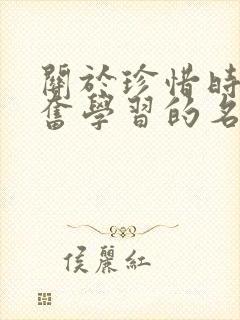 關於珍惜時
奮學習的名
侯麗紅